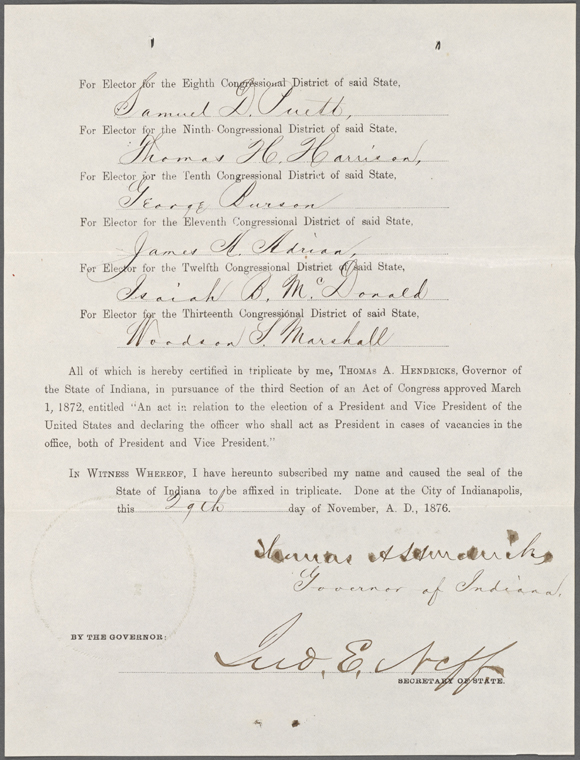 For Elector for the Eighth Congressional District of said State,
Samuel D. Puett,
For Elector for the Ninth Congressional District of said State,
Thomas H. Harrison,
For Elector for the Tenth Congressional District of said State,
George Burson
For Elector for the Eleventh Congressional District of said State,
James A. Adrian,
For Elector for the Twelfth Congressional District of said State,
Isaiah B. McDonald
For Elector for the Thirteenth Congressional District of said State,
Woodson S. Marshall
All of which is hereby certified in triplicate by me, THOMAS A. HENDRICKS, Governor of
the State of Indiana, in pursuance of the third Section of an Act of Congress approved March
1, 1872, entitled "An act in relation to the election of a President and Vice President of the
United States and declaring the officer who shall act as President in cases of vacancies in the
office, both of President and Vice President."
IN WITNESS WHEREOF, I have hereunto subscribed my name and caused the seal of the
State of Indiana to be affixed in triplicate. Done at the City of Indianapolis,
this 29th day of November, A. D., 1876.
Thomas A Hendricks
Governor of Indiana.
BY THE GOVERNOR:
Jno. E. Neff
SECRETARY OF STATE.